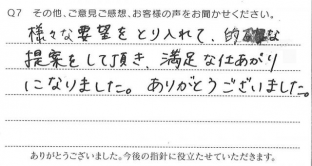 Q7 その他、ご意見ご感想、お客様の声をお聞かせください。
様々な要望をとり入れて、的確な
提案をして頂き、満足な仕あがり
になりました。ありがとうございました。
ありがとうございました。今後の指針に役立たせていただきます。